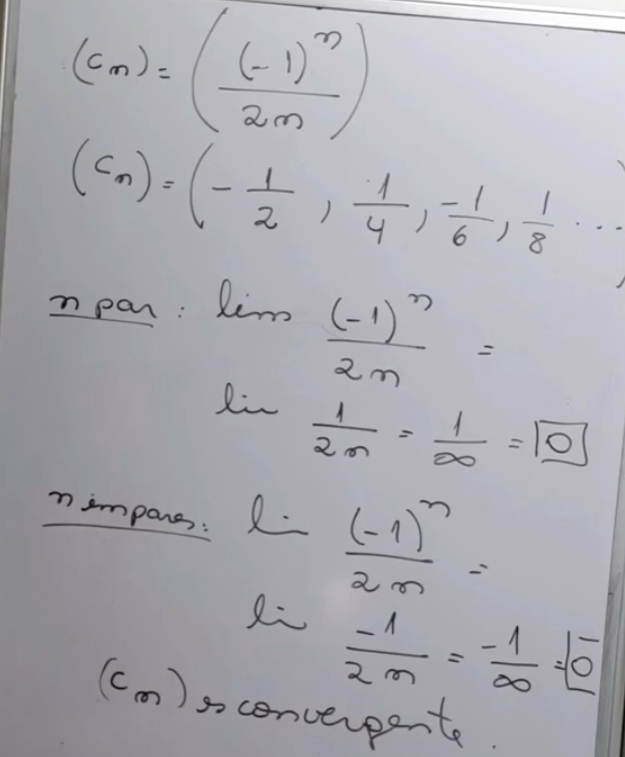 (cn) = ((-1)^n / 2n)
(cn) = (-1/2, 1/4, -1/6, 1/8 ...)
n par: lim (-1)^n / 2n =
lim 1/2n = 1/∞ = 0
n impares: li (-1)^n / 2n =
li -1/2n = -1/∞ = 0
(cn) es convergente.